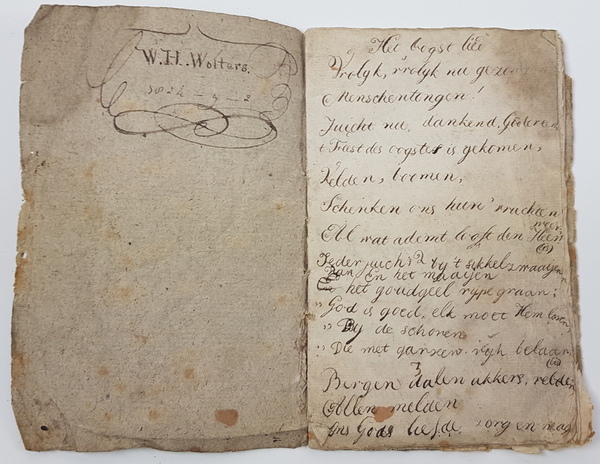 W. H. Wolters.
1824 - 9 - 2
Het oogst lied
Vrolyk, vrolyk nu gezong
Menschentongen!
Juicht nu, dankend, God
't Frast des oogstes is gekomen,
Velden, boomen,
Schenken ons hun' vruchten
weer
Al wat ademt looft den Heer
(bis)
Ieder juich' by 't sikkelzwaaijen
En het maaijen
Van het goudgeel rype graan;
" God is goed, elk moet Hem loven
" By de schoven
" Die met ganzen ryk belaan
(bis)
3
Bergen dalen akkers, velden
Allen melden
Ons Gods liefde zorg en